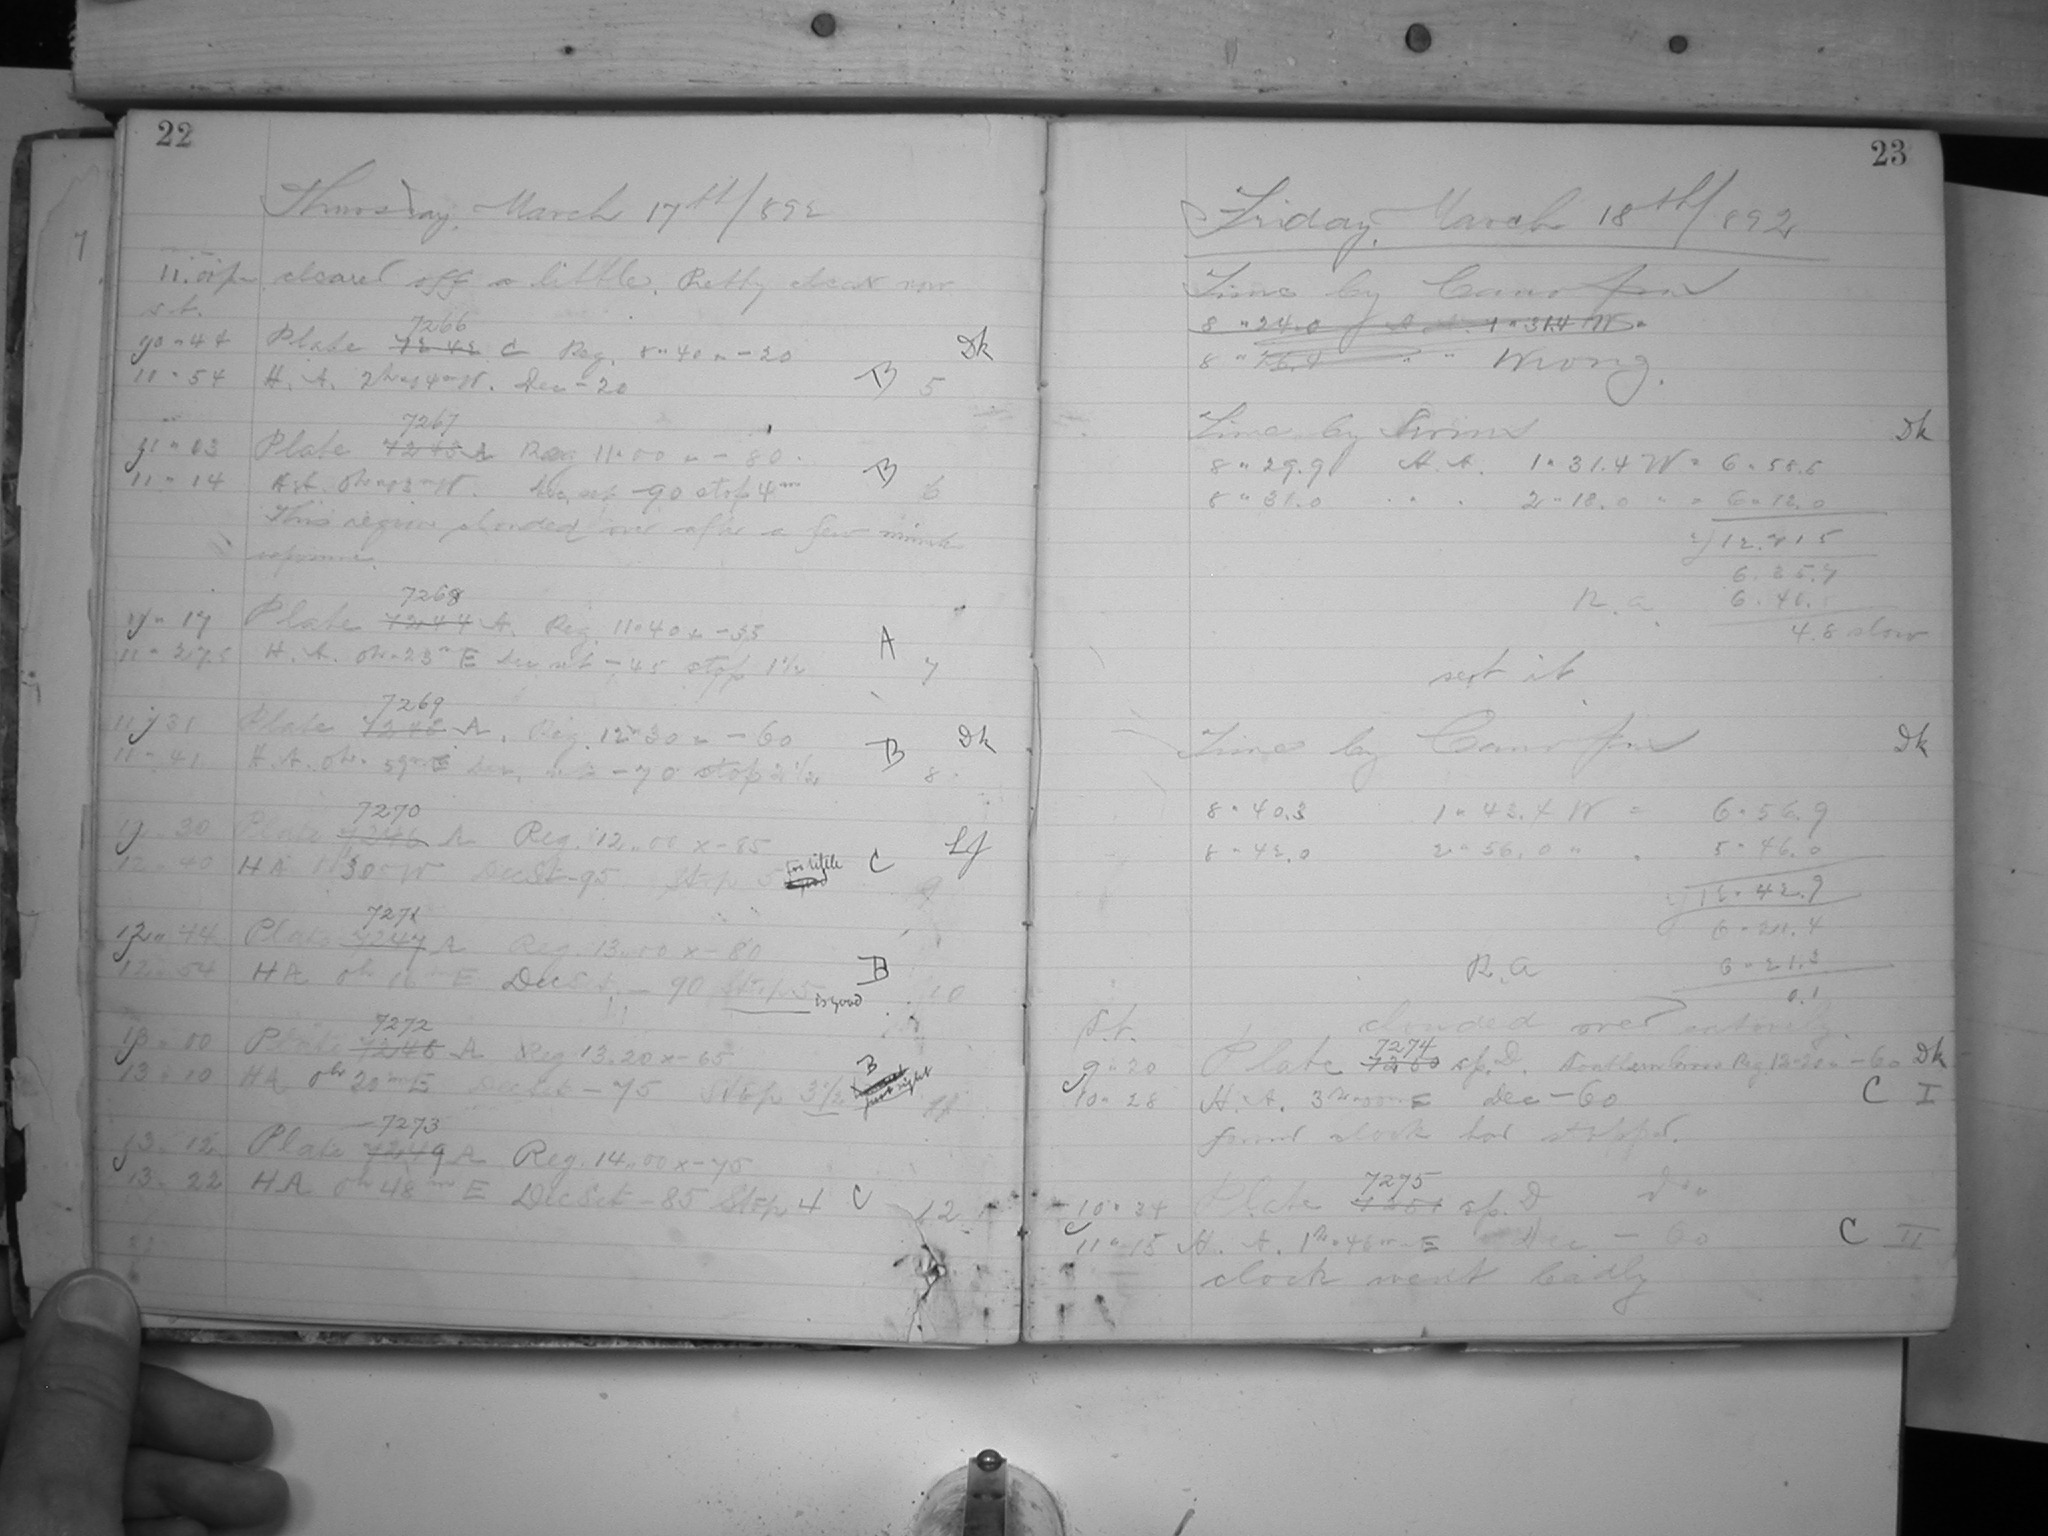 22
Thursday, March 17th/892
cleared off a little. Pretty clear now
s.t.
7266
10 44 Plate 7242 C Reg. 8 40 x -20 Dk
11 54 H. A. 2h 14m W. Dec -20 B 5
7267
11 03 Plate 7243 A Reg 11 00 x -80
11 14 H.A. 0h 03m W. Dec set -90 stop 4 B 6
This region clouded over after a few minutes
exposure.
7268
11 17 Plate 7244 A. Reg. 11 40 x -35
11 27.5 H. A. 0h 23m E Dec set -45 stop 1½ A 7
7269
11 31 Plate 7245 A. Reg. 12 30 x -60 Dk
11 41 H. A. 0h 59m E Dec. set -70 stop B 8
7270
30 Plate 7246 A Reg. 12 00 x -85 Lf
12 40 HA 0h 30m W Dec Set -95 Stop 5 too little C 9
7271
12 44 Plate 7247 A Reg. 13 00 x -80
12 54 HA 0h 16m E Dec Set -90 Stop 5 is good B 10
7272
13 00 Plate 7248 A Reg 13 20 x -65
13 10 HA 0h 20m E Dec Set -75 Stop 3½ just right B 11
7273
13 12 Plate 7249 A Reg. 14 00 x -75
13 22 HA 0h 48m E Dec Set -85 Stop 4 C 12
23
Friday, March 18th/892
Time by Canopus
8 24.0 H. A. 1 31.4 W
8 " " Wrong.
Time by Sirius Dk
8 29.9 H. A. 1 31.4 W = 6 58.5
8 31.0 " " 2 18.0 " = 6 12.0
6 35.7
R. a.
4.8 slow
set it
Time by Canopus Dk
8 40.3 1 43.4 W = 6 56.9
8 42.0 2 56.0 " " 5 46.0
12 42.9
6 21.4
R. a 6 21.3
0.1
clouded over entirely.
s.t.
7274
9 20 Plate 7250 sp. D. Southern Cross Reg 12 20 x -60 Dk
10 28 H. A. 3h 00m E dec -60 C I
found clock had stopped.
7275
10 34 Plate 7251 sp. D
11 15 H. A. 1h 46m E Dec -60 C II
clock went badly